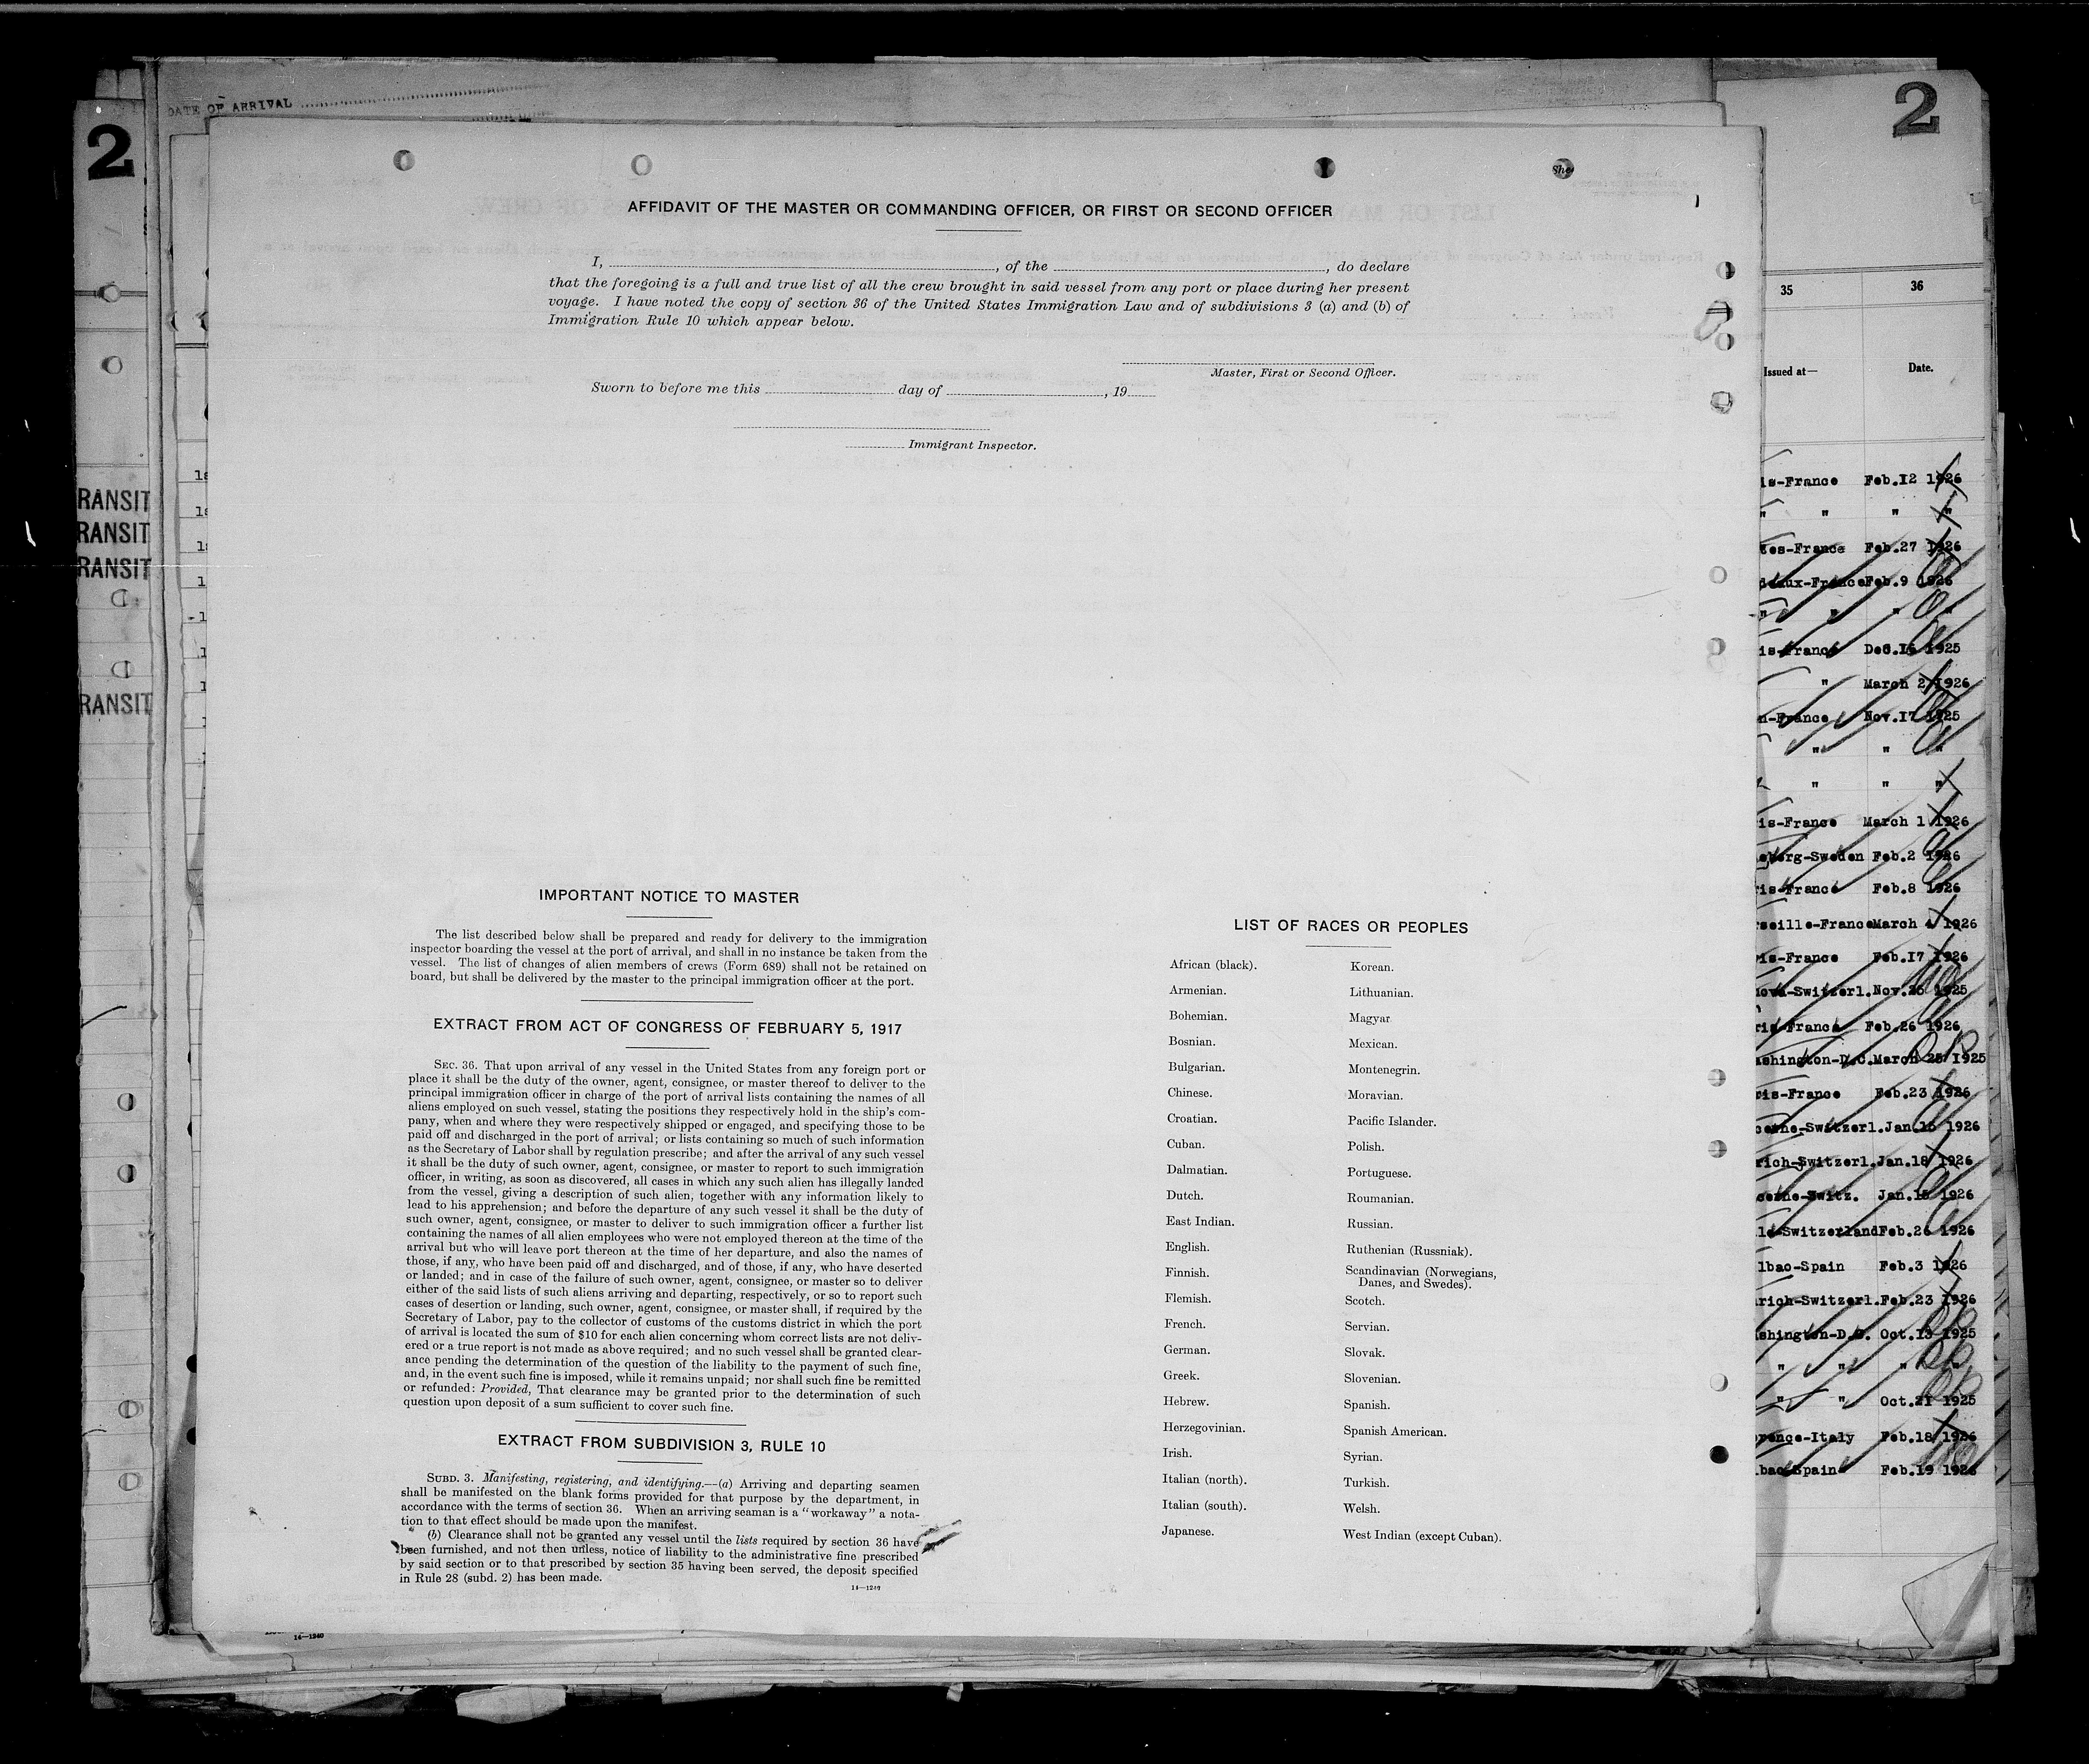 DATE OF ARRIVAL
2
2
AFFIDAVIT OF THE MASTER OR COMMANDING OFFICER, OR FIRST OR SECOND OFFICER
I, , of the , do declare
that the foregoing is a full and true list of all the crew brought in said vessel from any port or place during her present
voyage. I have noted the copy of section 36 of the United States Immigration Law and of subdivisions 3 (a) and (b) of
Immigration Rule 10 which appear below.
Master, First or Second Officer.
Sworn to before me this day of , 19
Immigrant Inspector.
IMPORTANT NOTICE TO MASTER
The list described below shall be prepared and ready for delivery to the immigration
inspector boarding the vessel at the port of arrival, and shall in no instance be taken from the
vessel. The list of changes of alien members of crews (Form 689) shall not be retained on
board, but shall be delivered by the master to the principal immigration officer at the port.
EXTRACT FROM ACT OF CONGRESS OF FEBRUARY 5, 1917
SEC. 36. That upon arrival of any vessel in the United States from any foreign port or
place it shall be the duty of the owner, agent, consignee, or master thereof to deliver to the
principal immigration officer in charge of the port of arrival lists containing the names of all
aliens employed on such vessel, stating the positions they respectively hold in the ship's com-
pany, when and where they were respectively shipped or engaged, and specifying those to be
paid off and discharged in the port of arrival; or lists containing so much of such information
as the Secretary of Labor shall by regulation prescribe; and after the arrival of any such vessel
it shall be the duty of such owner, agent, consignee, or master to report to such immigration
officer, in writing, as soon as discovered, all cases in which any such alien has illegally landed
from the vessel, giving a description of such alien, together with any information likely to
lead to his apprehension; and before the departure of any such vessel it shall be the duty of
such owner, agent, consignee, or master to deliver to such immigration officer a further list
containing the names of all alien employees who were not employed thereon at the time of the
arrival but who will leave port thereon at the time of her departure, and also the names of
those, if any, who have been paid off and discharged, and of those, if any, who have deserted
or landed; and in case of the failure of such owner, agent, consignee, or master so to deliver
either of the said lists of such aliens arriving and departing, respectively, or so to report such
cases of desertion or landing, such owner, agent, consignee, or master shall, if required by the
Secretary of Labor, pay to the collector of customs of the customs district in which the port
of arrival is located the sum of $10 for each alien concerning whom correct lists are not deliv-
ered or a true report is not made as above required; and no such vessel shall be granted clear-
ance pending the determination of the question of the liability to the payment of such fine,
and, in the event such fine is imposed, while it remains unpaid; nor shall such fine be remitted
or refunded: Provided, That clearance may be granted prior to the determination of such
question upon deposit of a sum sufficient to cover such fine.
EXTRACT FROM SUBDIVISION 3, RULE 10
SUBD. 3. Manifesting, registering, and identifying.—(a) Arriving and departing seamen
shall be manifested on the blank forms provided for that purpose by the department, in
accordance with the terms of section 36. When an arriving seaman is a "workaway" a nota-
tion to that effect should be made upon the manifest.
(b) Clearance shall not be granted any vessel until the lists required by section 36 have
been furnished, and not then unless, notice of liability to the administrative fine prescribed
by said section or to that prescribed by section 35 having been served, the deposit specified
in Rule 28 (subd. 2) has been made.
14—1240
LIST OF RACES OR PEOPLES
African (black).
Armenian.
Bohemian.
Bosnian.
Bulgarian.
Chinese.
Croatian.
Cuban.
Dalmatian.
Dutch.
East Indian.
English.
Finnish.
Flemish.
French.
German.
Greek.
Hebrew.
Herzegovinian.
Irish.
Italian (north).
Italian (south).
Japanese.
Korean.
Lithuanian.
Magyar.
Mexican.
Montenegrin.
Moravian.
Pacific Islander.
Polish.
Portuguese.
Roumanian.
Russian.
Ruthenian (Russniak).
Scandinavian (Norwegians,
Danes, and Swedes).
Scotch.
Servian.
Slovak.
Slovenian.
Spanish.
Spanish American.
Syrian.
Turkish.
Welsh.
West Indian (except Cuban).
RANSIT
RANSIT
RANSIT
RANSIT
14—1240
35 36
Issued at— Date.
is-France Feb.12 1926
" " " "
es-France Feb.27 1926
eaux-France Feb.9 1926
" " " "
is-France Dec.16 1925
" March 2 1926
n-France Nov.17 1925
" " "
" " "
is-France March 1 1926
eberg-Sweden Feb.2 1926
is-France Feb.8 1926
rseille-France March 4 1926
is-France Feb.17 1926
Switzerl. Nov. 1925
ris-France Feb.26 1926
ashington-D.C. March 25 1925
ris-France Feb.23 1926
cerne-Switzerl. Jan.15 1926
rich-Switzerl. Jan.18 1926
cerne-Switz. Jan.15 1926
le-Switzerland Feb.26 1926
lbao-Spain Feb.3 1926
rich-Switzerl. Feb.23 1926
shington-D.C. Oct.13 1925
" " " "
" " Oct.21 1925
orence-Italy Feb.18 1926
lbao-Spain Feb.19 1926